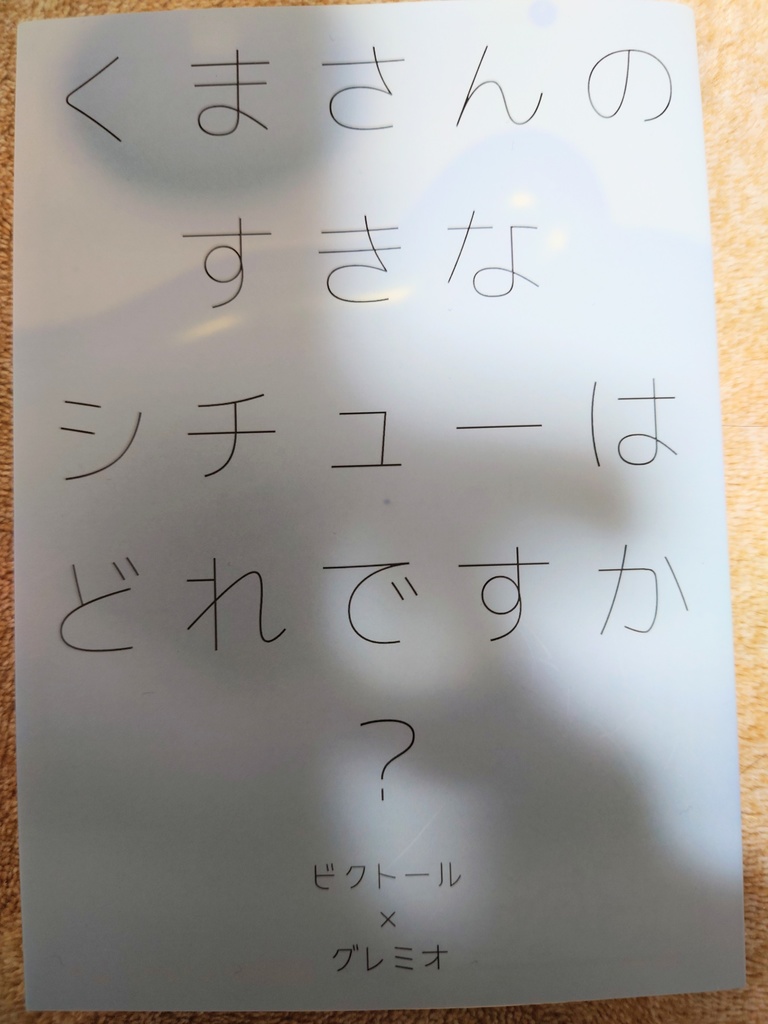 くまさんの
すきな
シチューは
どれですか
?
ビクトール
×
グレミオ